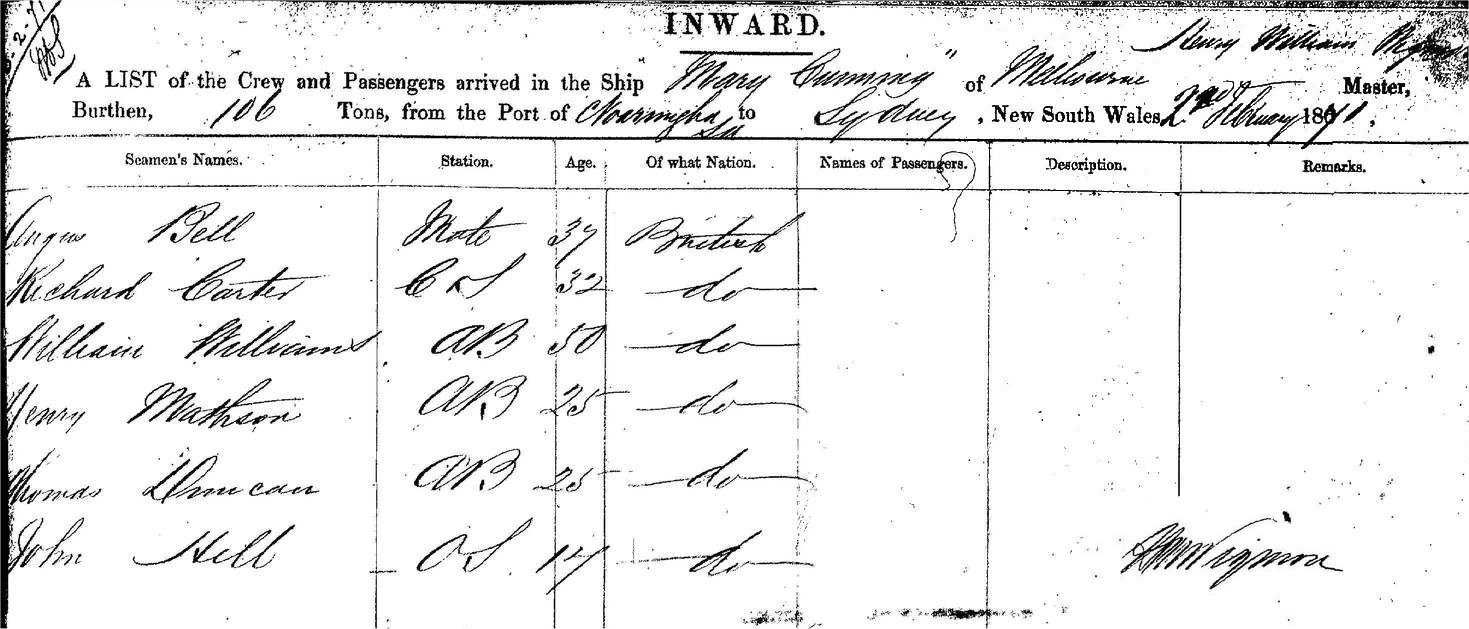 INWARD.
Henry William
A LIST of the Crew and Passengers arrived in the Ship "Mary Cumming" of Melbourne Master,
Burthen, 106 Tons, from the Port of to Sydney, New South Wales, 2nd February 1871.
Seamen's Names. Station. Age. Of what Nation. Names of Passengers. Description. Remarks.
Angus Bell Mate 37 British
Richard Carter C & S 32 do
William Williams AB 50 do
Henry Mathson AB 25 do
Thomas Duncan AB 25 do
John Hill OS 17 do